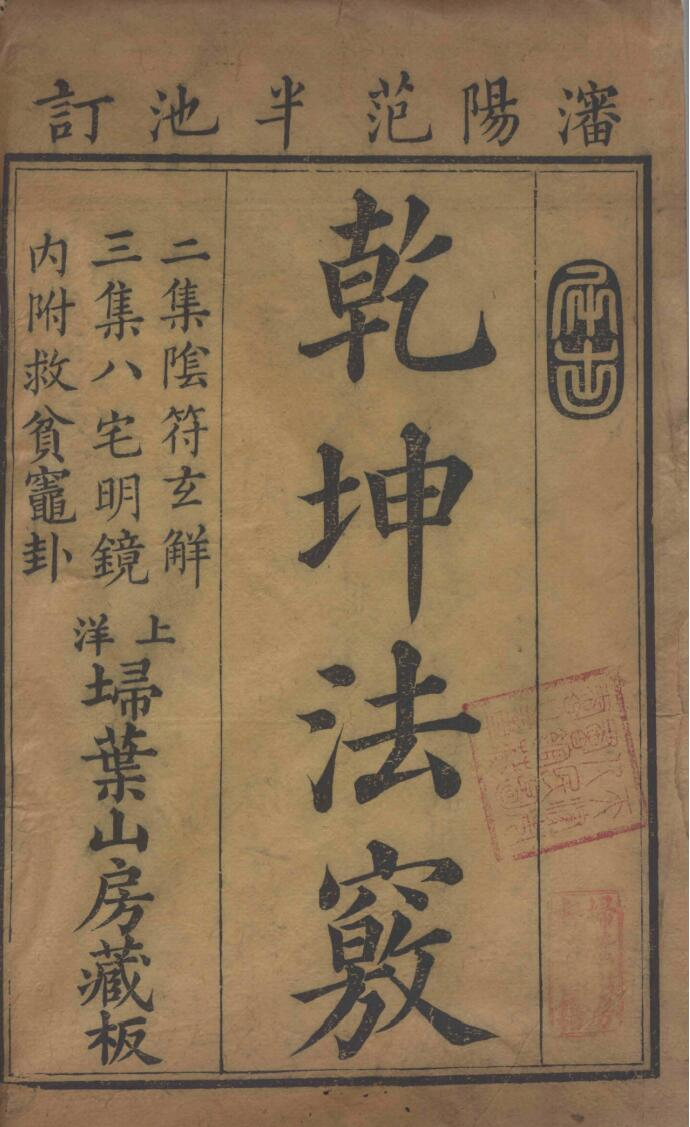 瀋陽范半池訂
乾坤法竅
二集陰符玄解
三集八宅明鏡
內附救貧竈卦
上洋
埽葉山房藏板